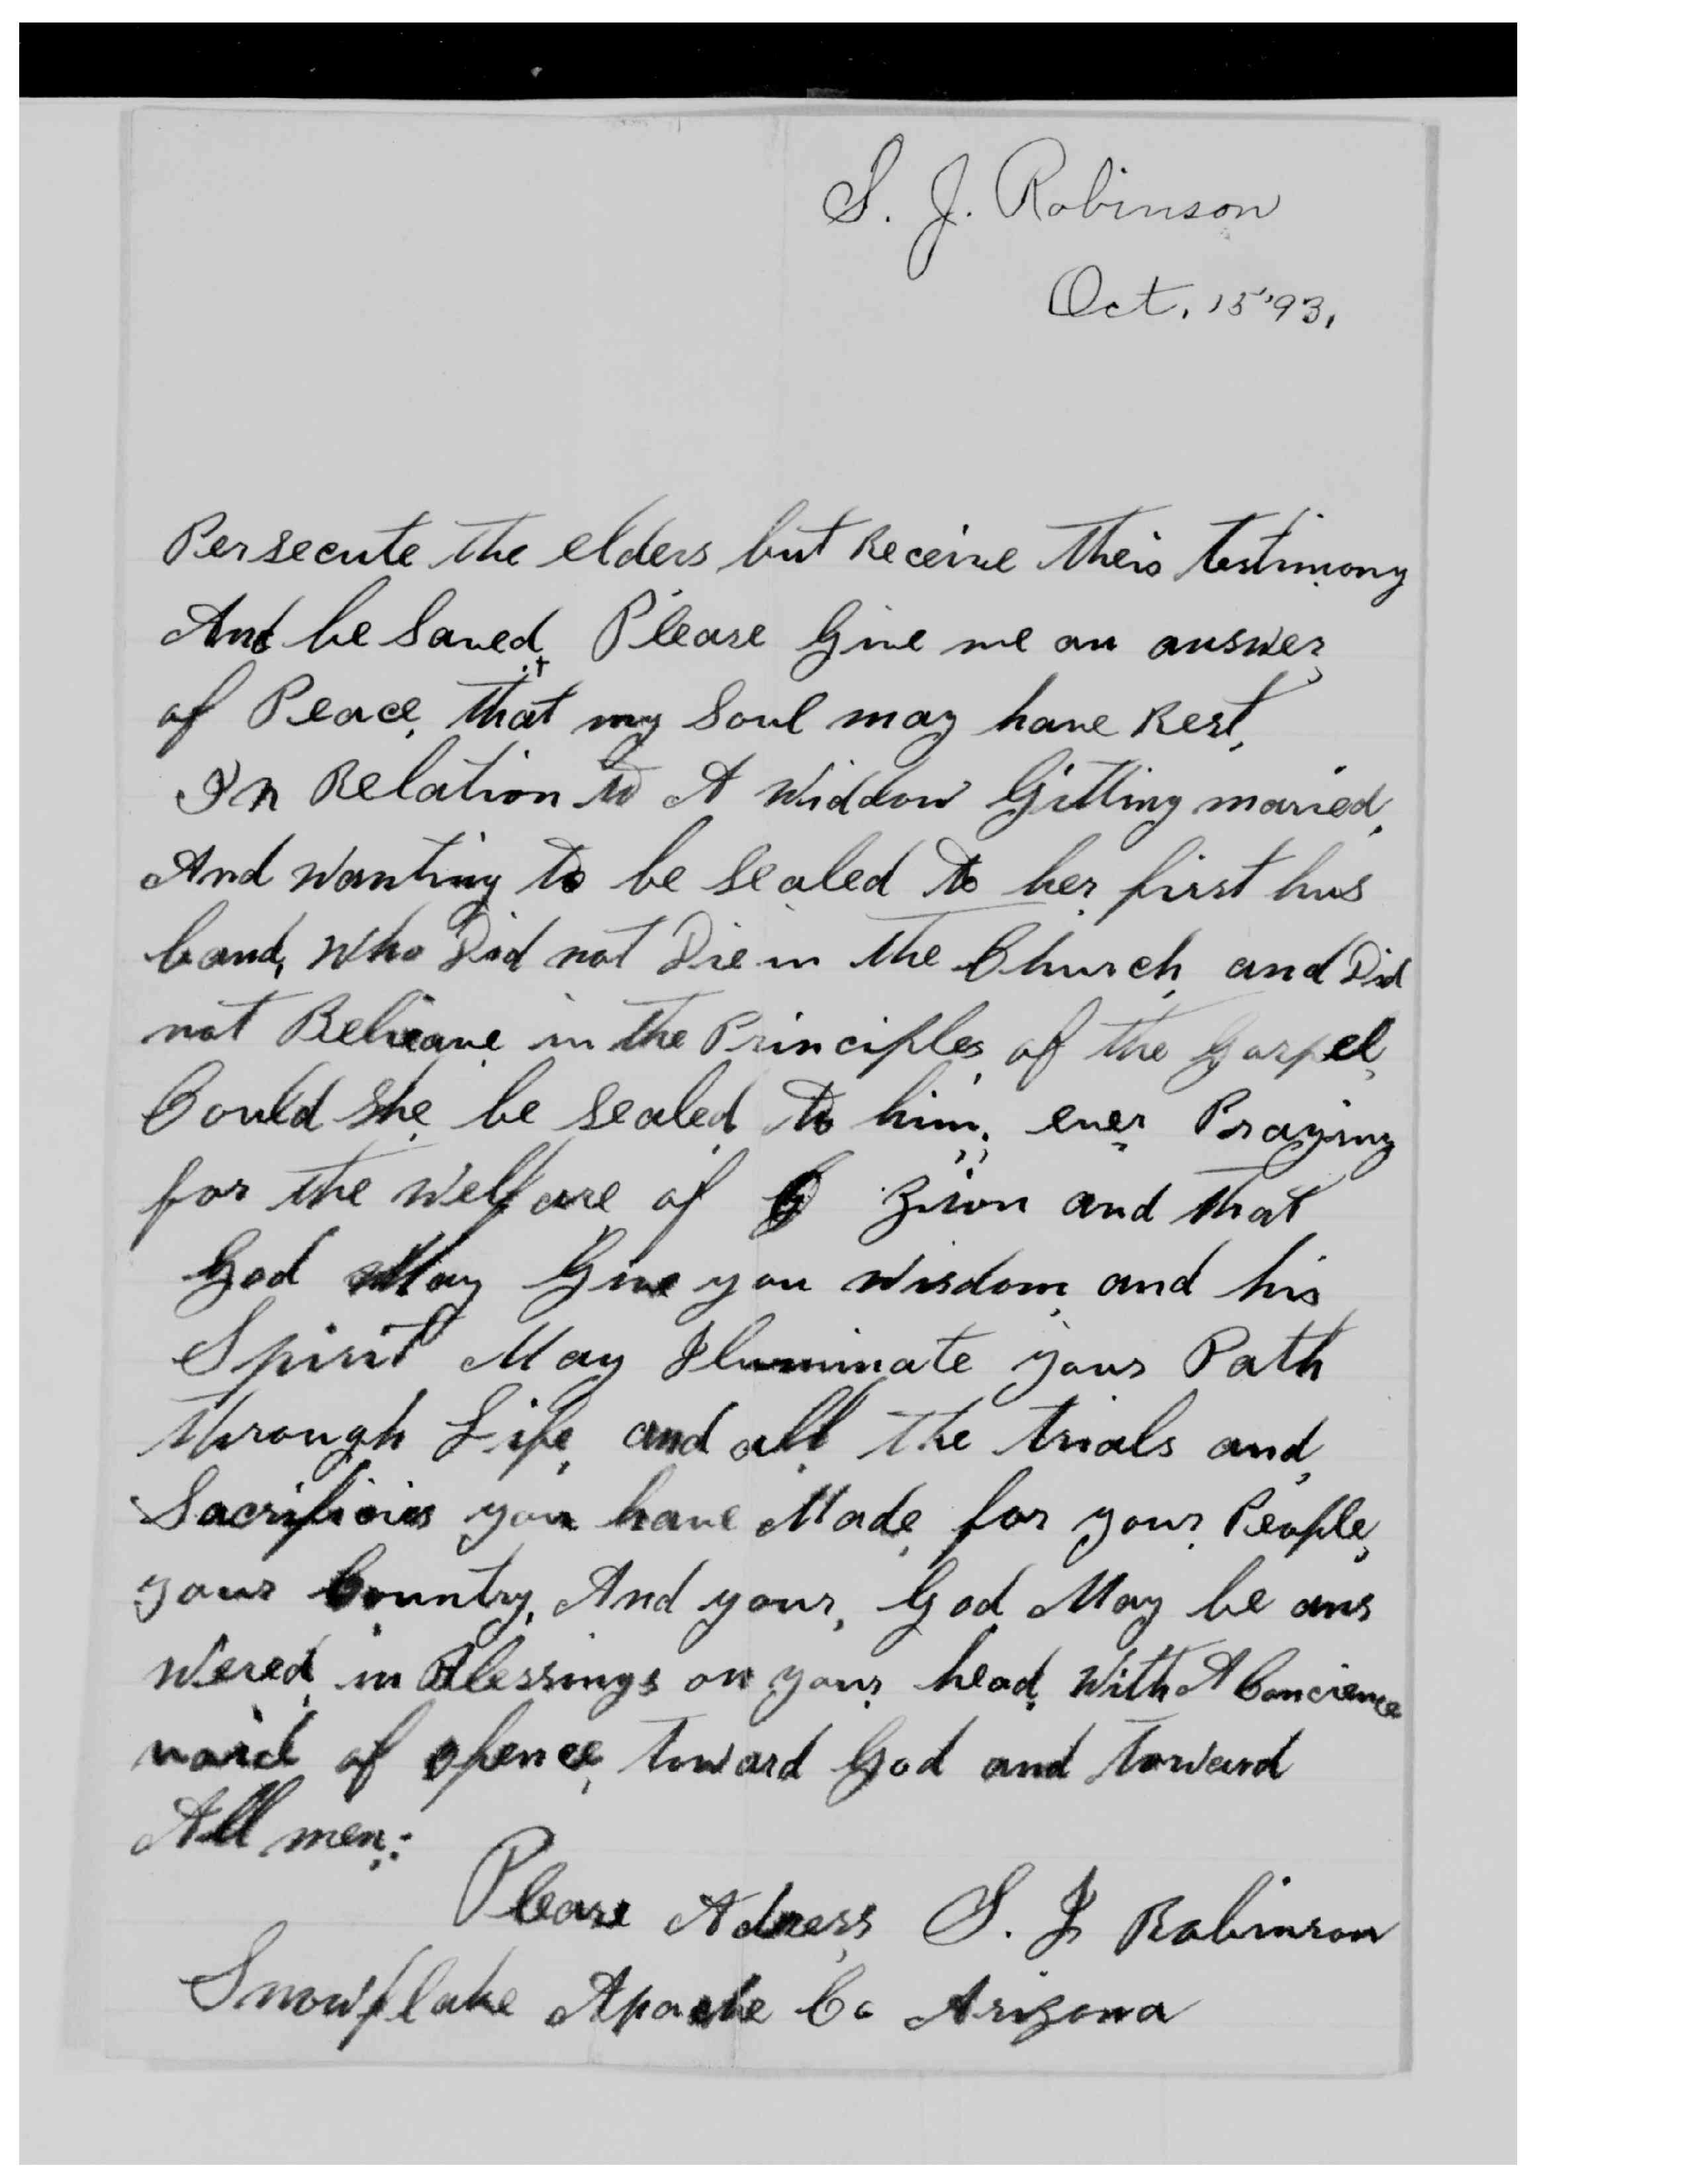 S. J. Robinson
Oct. 15 '93.
Persecute the elders but Receive their testimony
And be Saved, Please Give me an answer,
of Peace, that my Soul may have Rest,
In Relation to A Widdow Gitting maried,
And Wanting to be Sealed to her first hus
band, Who Did not Die in the Church, and Did
not Beleave in the Principles, of the Gospel,
Could She, be Sealed to him, ever Praying
for the Welfare of Zion and that
God May Give you Wisdom, and his
Spirit May Iluminate your Path
through Life, and all the trials and,
Sacrificies you have Made, for your People,
your Country, And your, God May be ans
wered, in Blessings on your head, With A Concience
void of ofence, toward God and torward
All men:
Please Adress S. J Robinson
Snowflake Apache Co Arizona